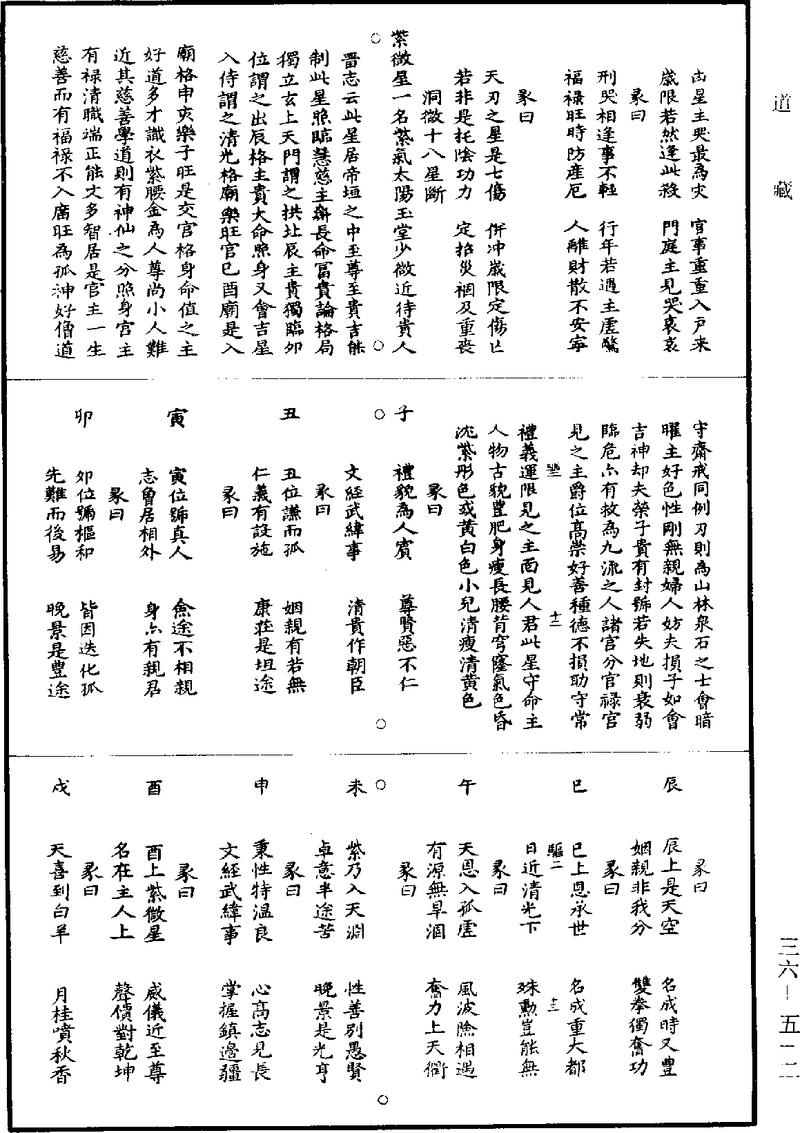 道藏
凶星主哭最為灾　官事重重入戶来
歲限若然逢此殺　門庭主見哭哀哀
彖曰
刑哭相逢事不輕　行年若遇主虛驚
福祿旺時防產厄　人離財散不安寧
彖曰
天刃之星是七傷　併冲歲限定傷亡
若非是托陰功力　定招災禍及重喪
洞微十八星斷
○紫微星一名紫氣太陽玉堂少微近待貴人○
晋志云此星居帝垣之中至尊至貴吉能
制此星照臨慧慈主壽長命冨貴論格局
獨立玄上天門謂之拱北辰主貴獨臨卯
位謂之出辰格主貴大命照身又會吉星
入侍謂之清光格廟樂旺宫巳酉廟是入
廟格申亥樂子旺是交宫格身命值之主
好道多才識衣紫腰金為人尊尚小人難
近其慈善學道則有神仙之分照身宫主
有祿清職端正能文多智居是官主一生
慈善而有福祿不入廟旺為孤神好僧道
守齋戒同例刃則為山林泉石之士會暗
曜主好色性剛無親婦人妨夫損子如會
吉神却夫榮子貴有封號若失地則衰弱
臨危亦有救為九流之人諸宫分官祿宫
見之主爵位高崇好善種德不損助守常
十二
禮義運限見之主面見人君此星守命主
人物古貌豐肥身瘦長腰背穹窿氣色昏
沈紫彤色或黃白色小兒清瘦清黃色
彖曰
○子　禮貌為人賓　尊賢惡不仁○
文經武緯事　清貴作朝臣
彖曰
丑　丑位謙而孤　姻親有若無
仁義有設施　康莊是坦途
彖曰
寅　寅位號真人　僉途不相親
志魯居相外　身亦有親君
彖曰
卯　卯位號樞和　皆因迭化孤
先難而後易　晚景是豐途
彖曰
辰　辰上是天空　名成時又豐
姻親非我分　雙拳獨奮功
彖曰
巳　巳上恩承世　名成重大都
驅二　十三
日近清光下　殊勳豈能無
彖曰
午　天恩入孤虛　風波險相遇
有源無旱涸　奮力上天衢
彖曰
○未　紫乃入天淵　性善別愚賢○
卓意半途苦　晚景是光亨
彖曰
申　秉性特溫良　心高志見長
文經武緯事　掌握鎮邊疆
彖曰
酉　酉上紫微星　威儀近至尊
名在主人上　聲價對乾坤
彖曰
戌　天喜到白羊　月桂噴秋香
三六－五一二